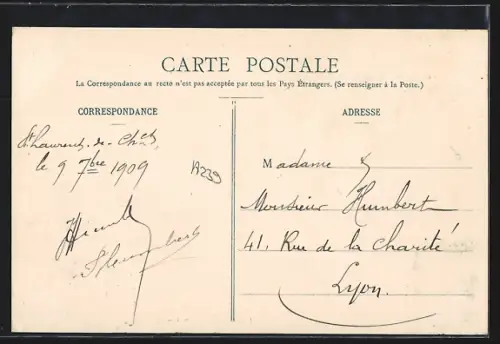 CARTE POSTALE
La Correspondance au recto n'est pas acceptée par tous les Pays Étrangers. (Se renseigner à la Poste.)
CORRESPONDANCE
St Laurent-de-
le 9 7bre 1909
A239
ADRESSE
Madame &
Monsieur Humbert
41, Rue de la Charité
Lyon.